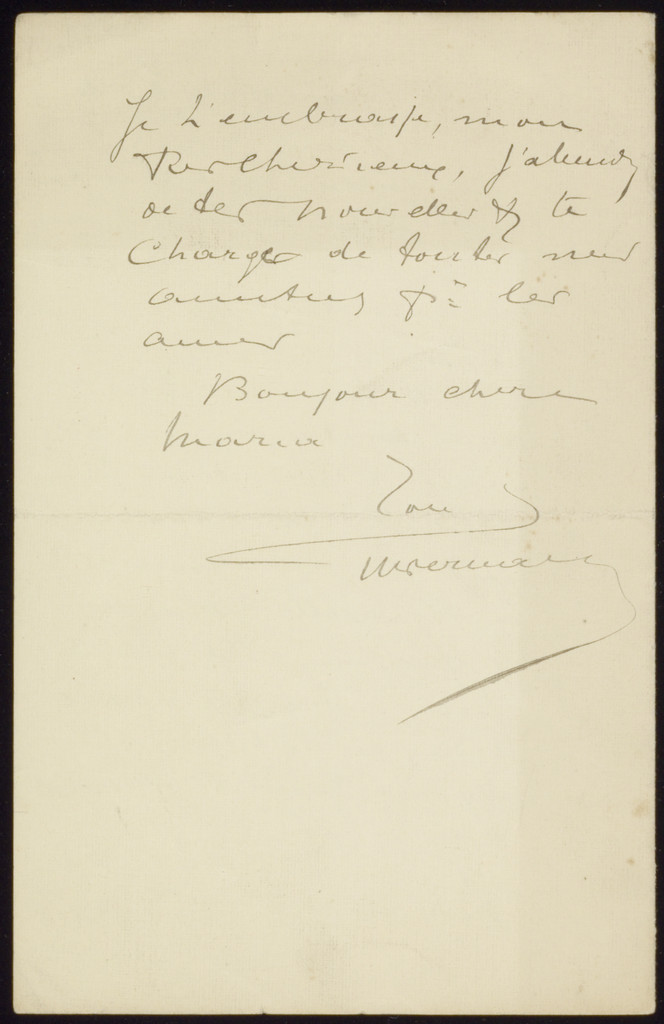 Je t'embrasse, mon
Cher vieux, j'attends
de tes nouvelles & te
Charge de toutes mes
amitiés pr les
amis
Bonjour chère
Maria
Ton